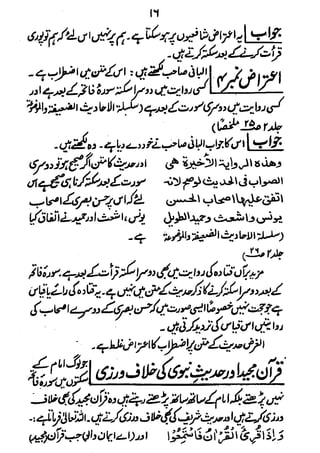 ۱۶
جواب یہ اعتراض شافعیوں پر ہو سکتا ہے۔ ہم پر نہیں اس لئے کہ ہم تو پوری
قرأت کرنے کے بعد سکتہ کرتے ہیں۔
اعتراض نمبر ۴ البانی صاحب لکھتے ہیں: اس کے متن میں اضطراب ہے۔
کسی روایت میں دوسرا سکتہ سورۃ فاتحہ کے بعد ہے اور
کسی روایت میں دوسری سورت کے بعد ہے (سلسلۃ الاحادیث الضعیفۃ والموضوعۃ
جلد ۲ ص ۲۵ ملخصا)
جواب اس کا جواب البانی صاحب نے خود دے دیا ہے۔ وہ لکھتے ہیں۔
وهذه الرواية الأخيرة هى
الصواب فى الحديث لوجم لانه
اتفق عليها اصحاب الحسن
يونس و اشعث وحميد الطويل
(سلسلۃ الاحادیث الضعیفۃ والموضوعۃ
جلد ۲ ص ۲۶)
اور حدیث کا متن اگر صحیح ہو تو دوسری
سورت کے بعد سکتہ کرنا ہی صحیح ہے اس
لئے کہ اس پر حسن بصری کے اصحاب
یونس، اشعث اور حمید نے اتفاق کیا
ہے۔
مزید برآں قتادہ کی روایت میں بھی دوسرا سکتہ قرأت کے بعد ہے، سورۃ فاتحہ
کے بعد دوسرا سکتہ کرنے کا ذکر حدیث کے متن میں نہیں ہے۔ یہ قتادہ کی رائے یا قیاس
ہے جو حجت نہیں خصوصاً ایسی صورت میں کہ حسن بصری کے دوسرے اصحاب کی
روایتیں اس قیاس کی تردید کرتی ہیں۔
الغرض حدیث کے متن پر اضطراب کا اعتراض غلط ہے۔
قرآن مجید اور حدیث نبوی کی خلاف ورزی جو لوگ امام کے
سکتوں میں سورۃ فاتحہ
نہیں پڑھتے بلکہ امام کے ساتھ ساتھ پڑھتے ہیں وہ قرآن مجید کی بھی خلاف
ورزی کرتے ہیں، اور حدیث شریف کی بھی خلاف ورزی کرتے ہیں۔ اللہ تعالیٰ فرماتا ہے:۔
وَإِذَا قُرِئَ الْقُرْآنُ فَاسْتَمِعُوا اور (اے ایمان والو) جب قرآن (مجید)